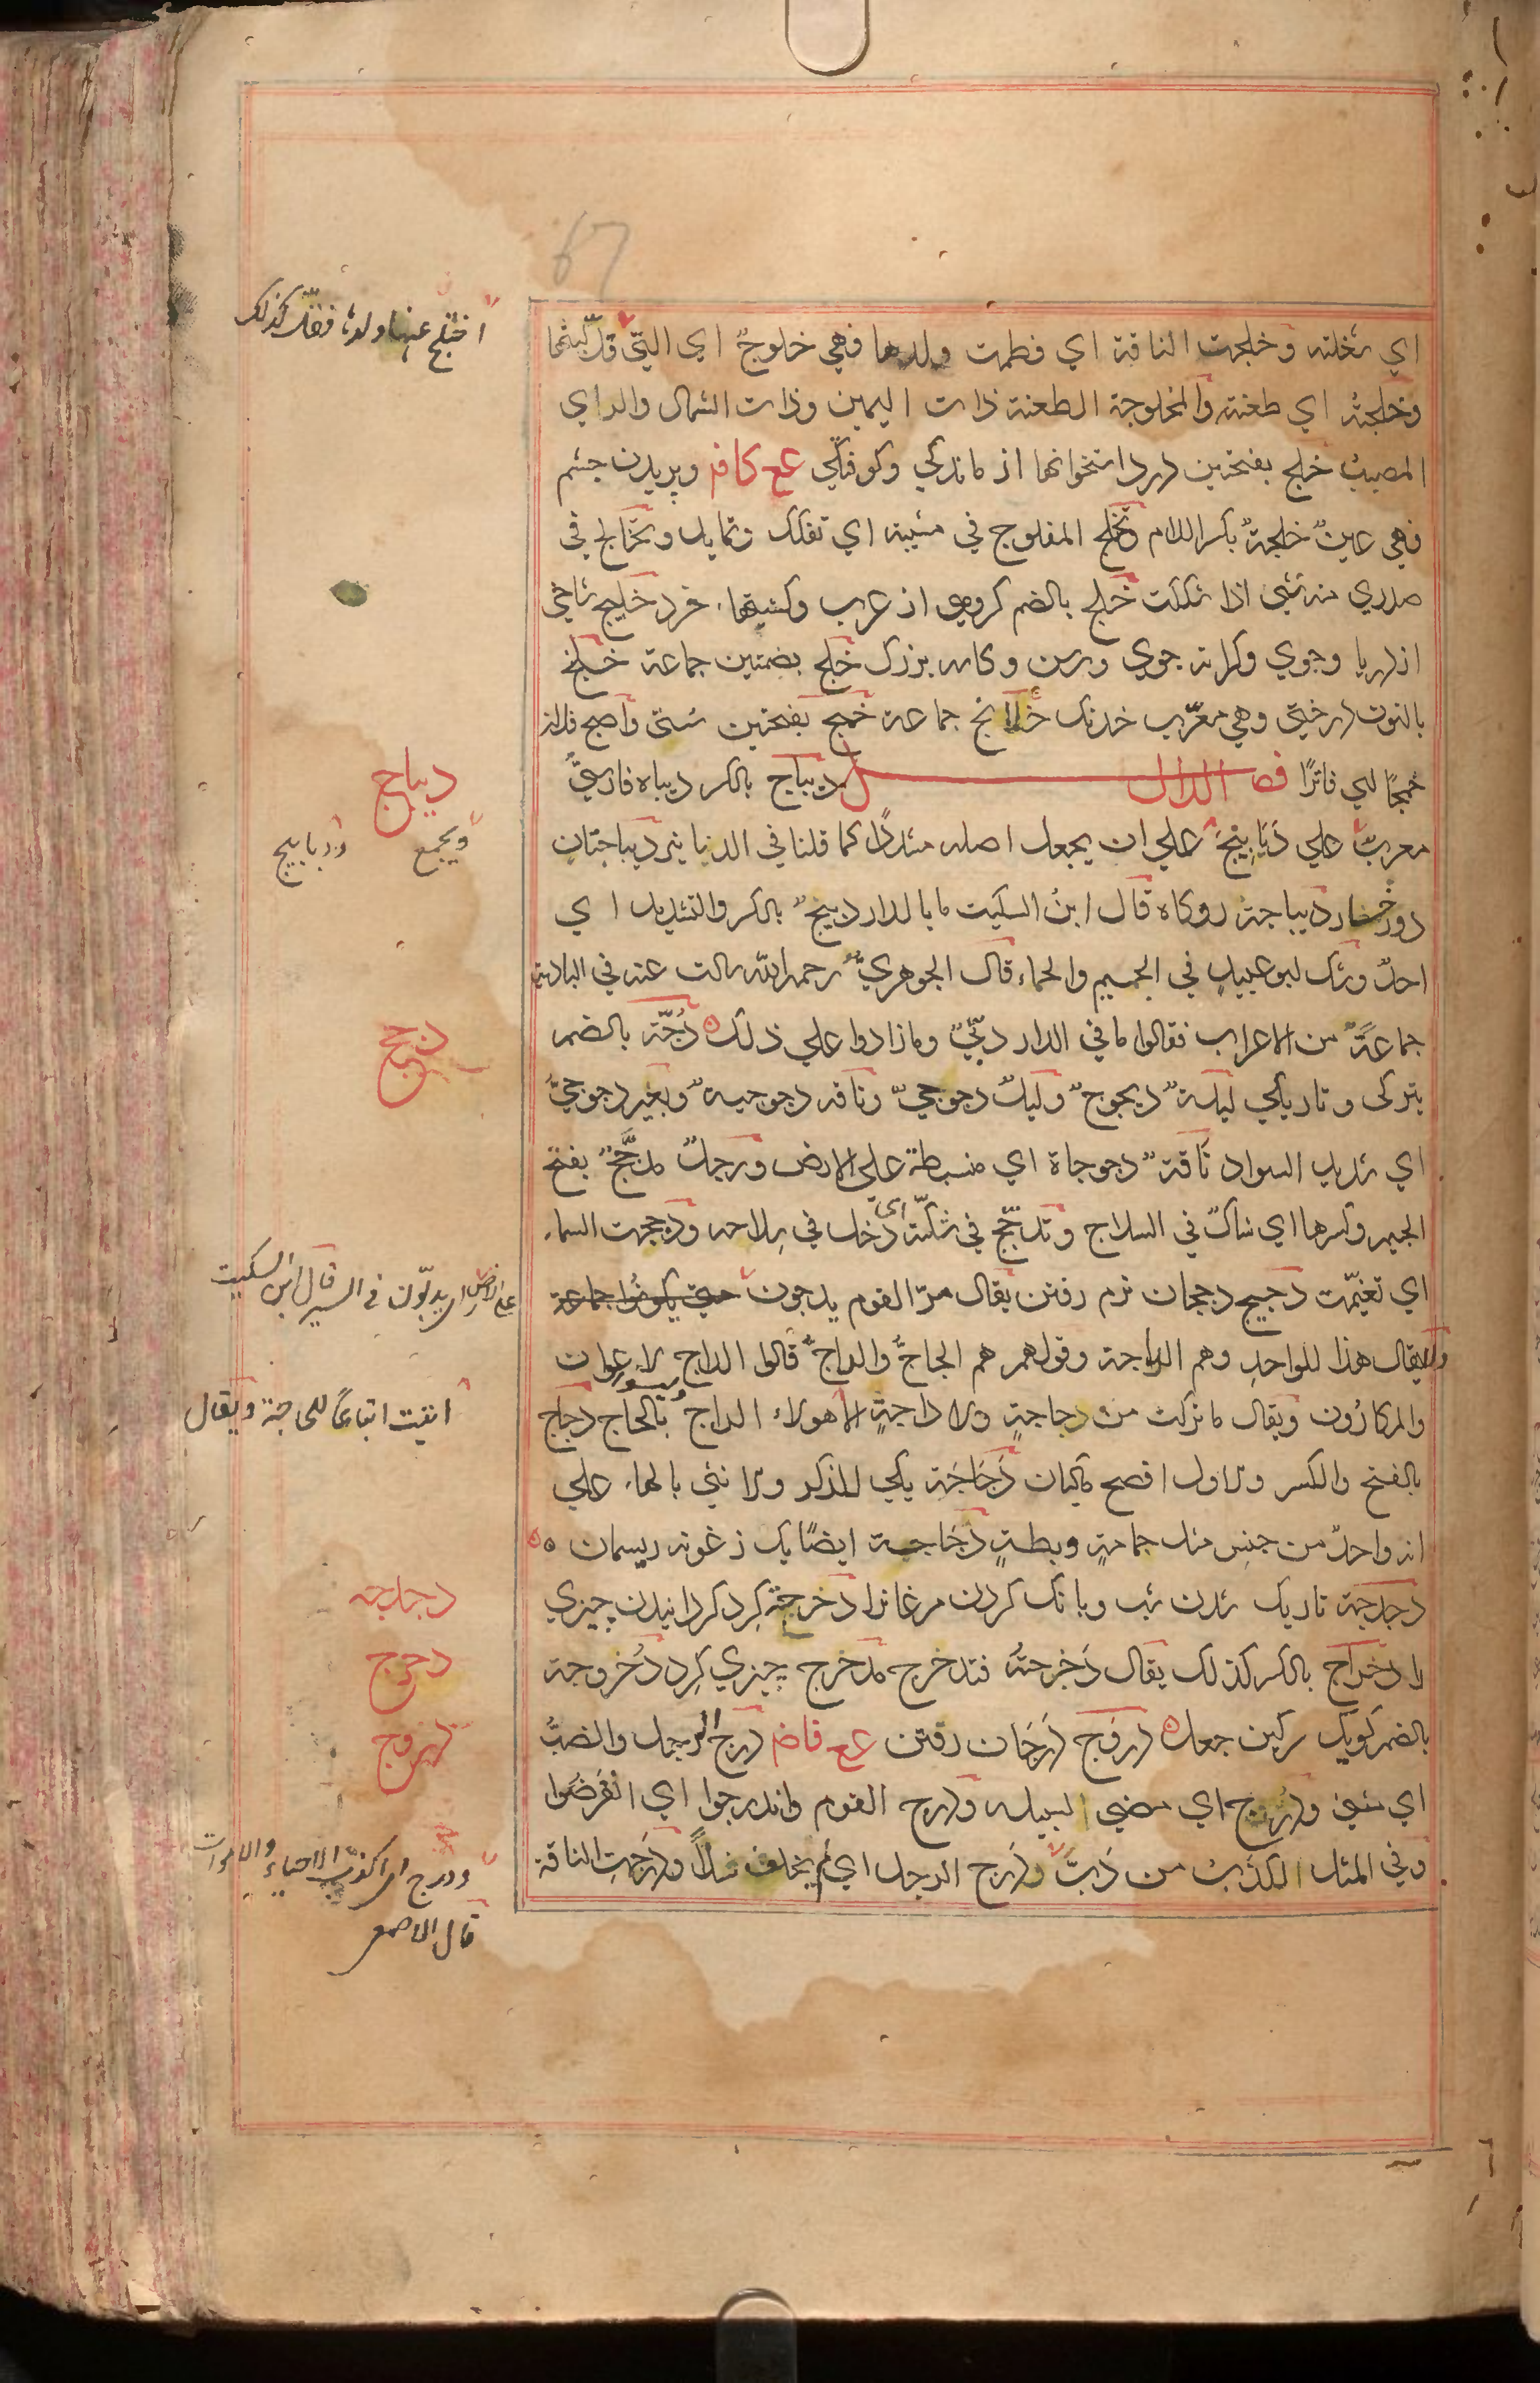 اي شغلته وخلجت الناقة اي فطمت ولدها فهي خلوجٌ اي التي قلّ لبنها
اختلج عنها ولدها فقلّ كذلك
وخلجهُ اي طعنه والمخلوجة الطعنة ذات اليمين وذات الشمال والراي
المصيبُ خلج بفتحتين درد استخوانها از ماندكي وكوفتكي عع كافر وپريدن چشم
فهي عينٌ خلجةٌ بكسر اللام تخلّج المفلوج في مشيته اي تفكك وتمايل وتخالج في
صدري منه شيء اذا شككت خلج بالضم كروهى از عرب وكشتيهاء خرد خليج شاخي
از دريا وجوي وكرانه جوي ورسن وكاسه بزرك خلج بضمتين جماعة خلنج
بالنون درختي وهي معرّب خدنك خلانج جماعة خمج بفتحتين سستي واصبح فلان
خمجًا اي فاترًا فصل الدال ديباج بالكسر ديباه فارسيٌّ
ديباج
معربٌ علي دَيَابِيْجَ علي ان يجعل اصله مشددًا كما قلنا في الدنانير ديباجتان
ويجمع
ودبابيج
دورخسار ديباجة روكاه قال ابنُ السكيت ما بالدار دبيجٌ بالكسر والتشديد اي
احدٌ وشك ابو عبيدٍ في الجيم والحاء قال الجوهريُّ رحمه الله سالت عنه في البادية
جماعةً من الاعراب فقالوا ما في الدار دبّيٌ وما زادوا علي ذلك دُجّة بالضم
دجج
تيركى وتاريكي ليلةٌ ديجوجٌ وليلٌ دجوجيٌّ وناقه دجوجيةٌ وبعير دجوجيٌّ
اي شديد السواد ناقةٌ دجوجاة اي منبسطة على الارض ورجلٌ مدجَّجٌ بفتح
الجيم وكسرها اي شاكّ في السلاح وتدجّج في شكّته اي دخل في سلاحه ودججت السماء
اي تغيّمت دجيج دججان نرم رفتن يقال مرّ القوم يدجون حتى يكونوا جماعة
علي الارض اي يدبّون في السير قال ابن السكيت
ولا يقال هذا للواحد وهم الداجة وقولهم هم الحاجُّ والداجُّ قالوا الداج الاعوان
والمكارُون ويقال ما تركت من حاجةٍ ولا داجةٍ الا هولاء الداج بالحاج دجاج
اتيت اتباعًا للحاجة ويقال
بالفتح والكسر والاول افصح ماكيان دَجَاجَة يكي للذكر والانثي بالهاء علي
انه واحدٌ من جنس مثل حمامةٍ وبطةٍ دَجَاجة ايضًا يك زغوته ريسمان
دجدجة تاريك شدن شب وبانك كردن مرغانرا دحرجة كرد كردانيدن چيزي
دجدجه
را دحراج بالكسر كذلك يقال دَحرجتُه فتدحرج مدحرج چيزي كرد دُحروجة
دحرج
بالضم كويك سركين جعل دروج دَرَجَان رفتن عع فاضر درج الرجل والضبُّ
دروج
اي مشي ودرج اي مضي لسبيله ودرج القوم واندرجوا اي انقرضُوا
وفي المثل اكذبُ من دَبَّ ودَرَج الرجل اي لم يخلف نسلًا ودَرَجت الناقة
ودرج اى اكذب الاحياء والاموات
قال الاصمعي
67